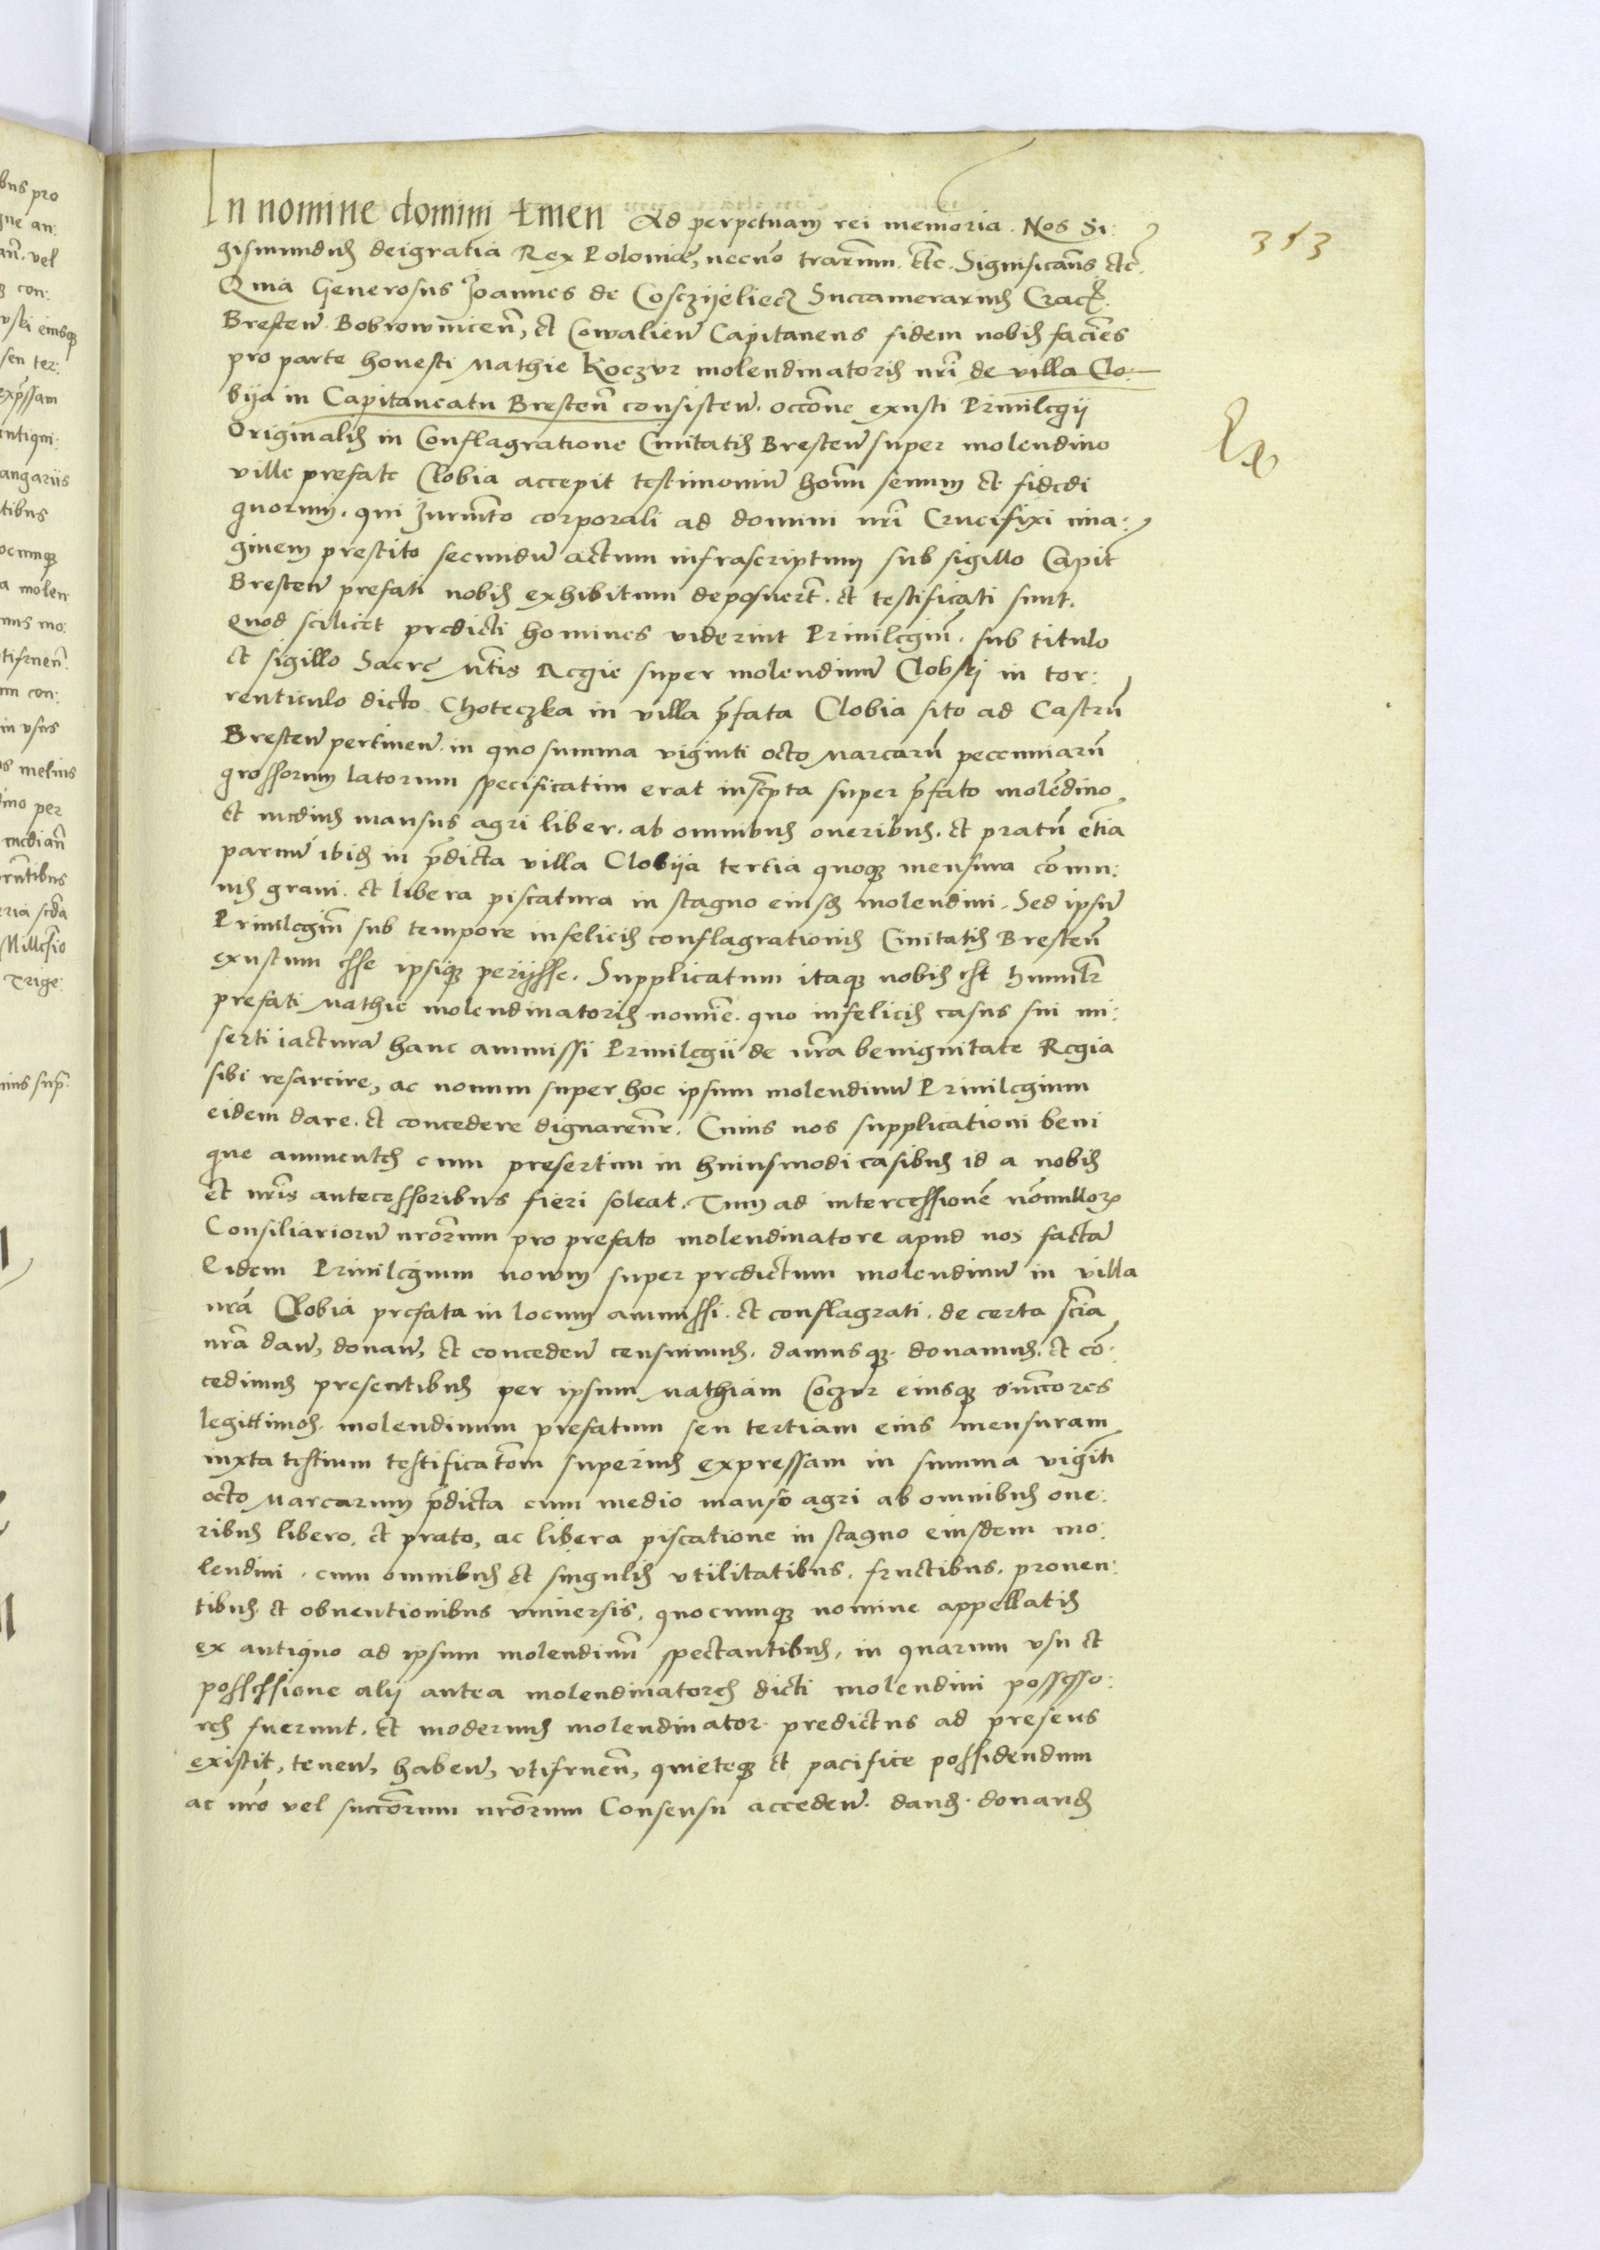 313
In nomine domini Amen Ad perpetuam rei memoria. Nos Si:
gismundus deigratia Rex Polonie, necno trarum. Etc. Significams etc.
Quia Generosus Joannes de Cosczyeliecz Succamerarius Crac.
Bresten Bobrownicen, et Cowalien Capitaneus fidem nobis facies
pro parte honesti Mathie Koczur molendinatoris nri de villa Clo:
bija in Capitaneatu Bresten consisten. occone exusti Privilegij
Originalis in Conflagratione Civitatis Bresten super molendino
ville prefate Clobia accepit testimoniu homu senum et fidedi
gnorum. qui Jurmto corporali ad domini nri Crucifixi ima:
ginem prestito secundu actum infrascriptum sub sigillo Capit
Bresten prefati nobis exhibitum deposuert. et testificati sunt.
Quod scilicet predicti homines viderint Privilegiu. sub titulo
et sigillo Sacre Mtis Regie super molendinu Clobski in tor:
renticulo dicto Choteczka in villa pfata Clobia sito ad Castru
Bresten pertinen. in quo summa viginti octo Marcaru pecuniaru
grossorum latorum specificatim erat inscpta super pfato molendino
et medius mansus agri liber. ab omnibus oneribus. et pratu etia
parvu ibid in pdicta villa Clobija tertia quoque mensura comu:
nis grani. et libera piscatura in stagno eiusd molendini. Sed ipsu
Privilegiu sub tempore infelicis conflagrationis Civitatis Bresten
exustum esse ipsique perijsse. Supplicatum itaque nobis est humilr
prefati Mathie molendinatoris nomie. quo infelicis casus sui mi:
serti iactura hanc ammissi Privilegii de nra benignitate Regia
sibi resarcire, ac novum super hoc ipsum molendinu Privilegium
eidem dare. et concedere dignaremr. Cuius nos supplicationi beni
gne annuentes cum presertim in huiusmodi casibus id a nobis
et nris antecessoribus fieri soleat. Tum ad intercessione nonullor
Consiliarioru nrorum pro prefato molendinatore apud nos facta
Eidem Privilegium novum super predictum molendinu in villa
nra Clobia prefata in locum ammissi. et conflagrati. de certa scia
nra dan, donan, et conceden censuimus. damusque. donamus. et co:
cedimus presentibus per ipsum Mathiam Coczur eiusque succores
legittimos. molendinum prefatum seu tertiam eius mensuram
iuxta testium testificatom superius expressam in summa viginti
octo Marcarum pdicta cum medio manso agri ab omnibus one:
ribus libero. et prato, ac libera piscatione in stagno eiusdem mo:
lendini. cum omnibus et singulis utilitatibus. fructibus. proven:
tibus. et obventionibus universis. quocunque nomine appellatis
ex antiquo ad ipsum molendinu spectantibus, in quarum usu et
possessione alij antea molendinatores dicti molendini possesso:
res fuerunt. et modernus molendinator predictus ad presens
existit, tenen, haben, utifruen, quieteque et pacifice possidendum
ac nro vel succorum nrorum Consensu acceden. dand. donand